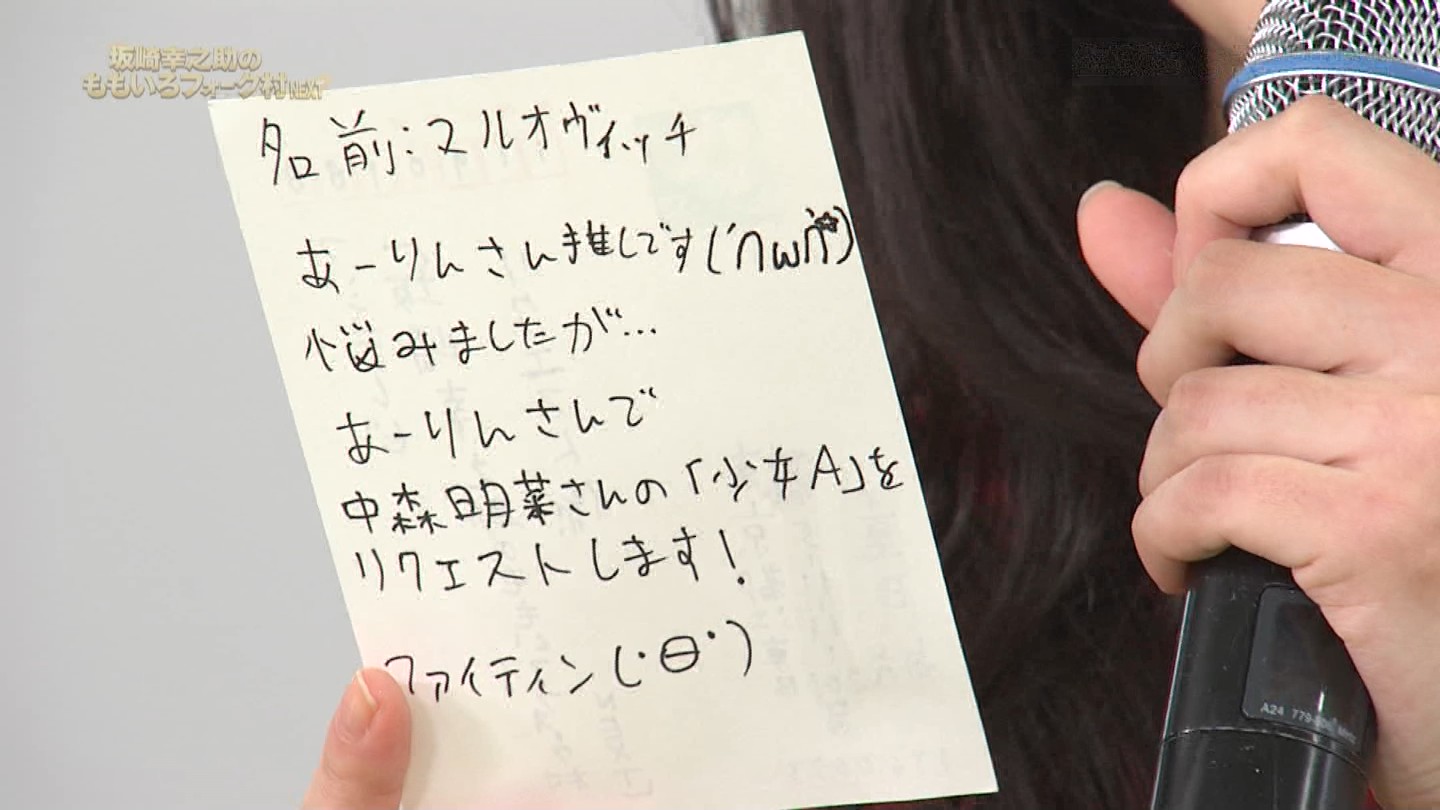 坂崎幸之助の
ももいろフォーク村NEXT
名前:ヌルオヴィッチ
あーりんさん推しです(´∩ω∩`)
悩みましたが…
あーりんさんで
中森明菜さんの「少女A」を
リクエストします!
ファイティン(・θ・)
A24